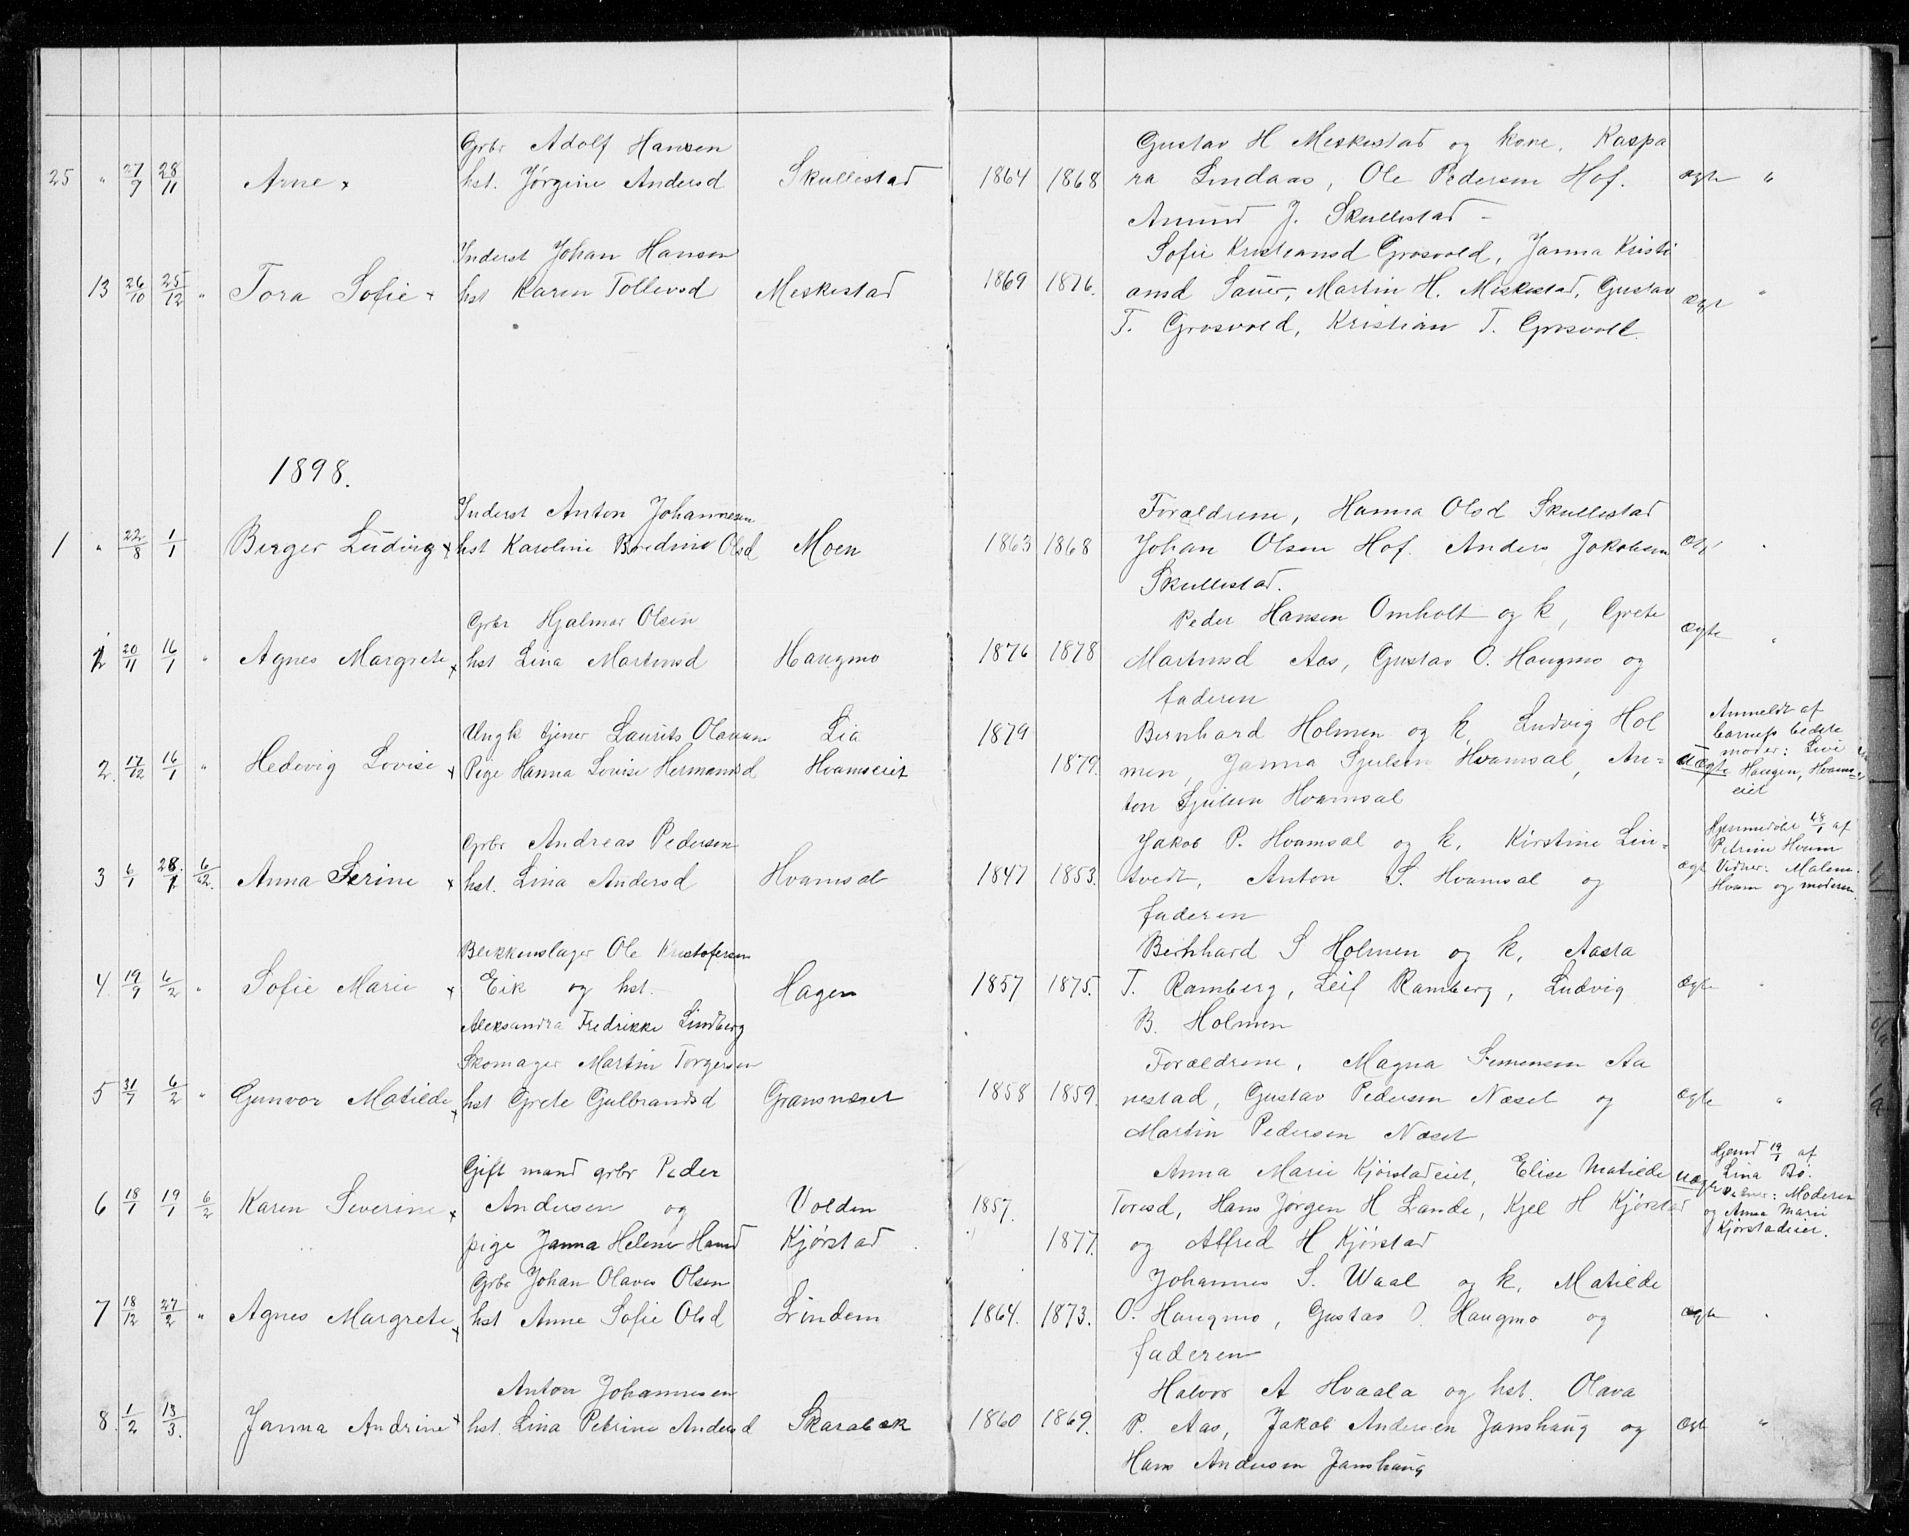 Grbr Adolf Hansen
25 " 27/9 28/11 Arne x hst. Jørgine Andersd Skullestad
Inderst Johan Hansen
13 26/10 25/12 " Tora Sofie x hst Karen Tollevsd Meskestad
1898.
Inderst Anton Johannesen
1 " 22/8 1/1 Berger Ludvig x hst Karoline Olsd Moen
Grbr Hjalmar Olsen
2 20/11 16/1 " Agnes Margrete x hst Lina Martinsd Haugmo
Ungk tjener Laurits Olausen Lia
2. 17/12 16/1 " Hedevig Lovise x Pige Hanna Lovise Hermansd Hvamseiet
Grbr Andreas Pedersen
3 6/1 28/1 6/2. Anna Serine x hst. Lina Andersd Hvamsal
Blikkenslager Ole Kristofersen
4. 19/9 6/2 " Sofie Marie x Eik og hst. Hagen
Aleksandra Fredrikke Lindberg
Skomager Martin Torgersen
5 31/7 6/2 " Gunvor Matilde x hst Grete Gulbrandsd Gransnæset
Gift mand grbr Peder
6 18/1 19/1 6/2 Karen Severine x Andersen og Volden
pige Janna Helene Hansd Kjørstad
Grbr Johan Olaves Olsen
7 18/12 27/2 " Agnes Margrete x hst Anne Sofie Olsd Lindem
Anton Johannesen
8. 1/2 13/3. Janna Andrine x hst. Lina Petrine Andersd Skarabæk
Gustav H Meskestad og kone, Kaspa
1864 1868 ra Lindaas, Ole Pedersen Hof. ægte "
Amund J. Skullestad
Sofie Kristiansd Grosvold, Janna Kristi
1869 1876. ansd Sauer, Martin H. Meskestad, Gustav ægt "
T. Grosvold, Kristian T. Grosvold.
Forældrene, Hanna Olsd Skullestad
1863 1868 Johan Olsen Hof. Anders Jakobsen ægt "
Skullestad.
Peder Hansen Omholt og k, Grete
1876 1878 Martinsd Aas, Gustav O. Haugmo og ægte "
faderen
1879 Bernhard Holmen og k, Ludvig Hol
1879. men, Janna Sjulsen Hvamsal, An=
ton Sjulsen Hvamsal
uægte Anmeldt af
barnets bedste
moder: Live
Haugen, Hvams=
eiet
Jakob P. Hvamsal og k, Kirstine Lin=
1847 1853. tvedt, Anton S. Hvamsal og ægt
faderen
Hjemmedøbt 28/1 af
Petrine Hvam
Vidner: Malene
Hvam og moderen.
Bernhard S Holmen og k, Aasta
1857 1875. T. Ramberg, Leif Ramberg, Ludvig ægte "
B. Holmen
Forældrene, Magna Simonsen Aa
1858 1859. nestad, Gustav Pedersen Næset og ægte "
Martin Pedersen Næset
Anna Marie Kjørstadeiet, Elise Matilde uægte
1857. Toresd, Hans Jørgen H Lande, Kjel H Kjørstad
1877. og Alfred H Kjørstad
Hjemd 19/1 af
Lina Bø.
Vidner: Moderen
og Anna Marie
Kjørstadeiet.
Johannes S. Waal og k, Matilde
1864. 1873. O. Haugmo, Gustav O. Haugmo og ægte "
faderen
Halvor A Hvaala og hst. Olava
1860 1869. P. Aas, Jakob Andersen Janshaug og ægt "
Hans Andersen Janshaug